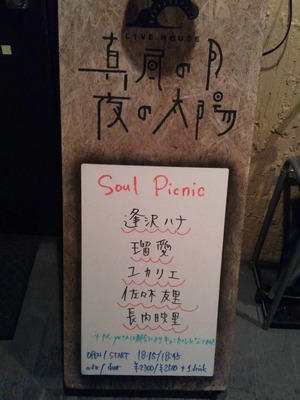 LIVE HOUSE
真昼の月
夜の太陽
Soul Picnic
逢沢ハナ
瑠愛
ユカリエ
佐々木友里
長内映里
OPEN / START 18:15/18:45
adv / door ¥2300/¥2500 + 1 drink